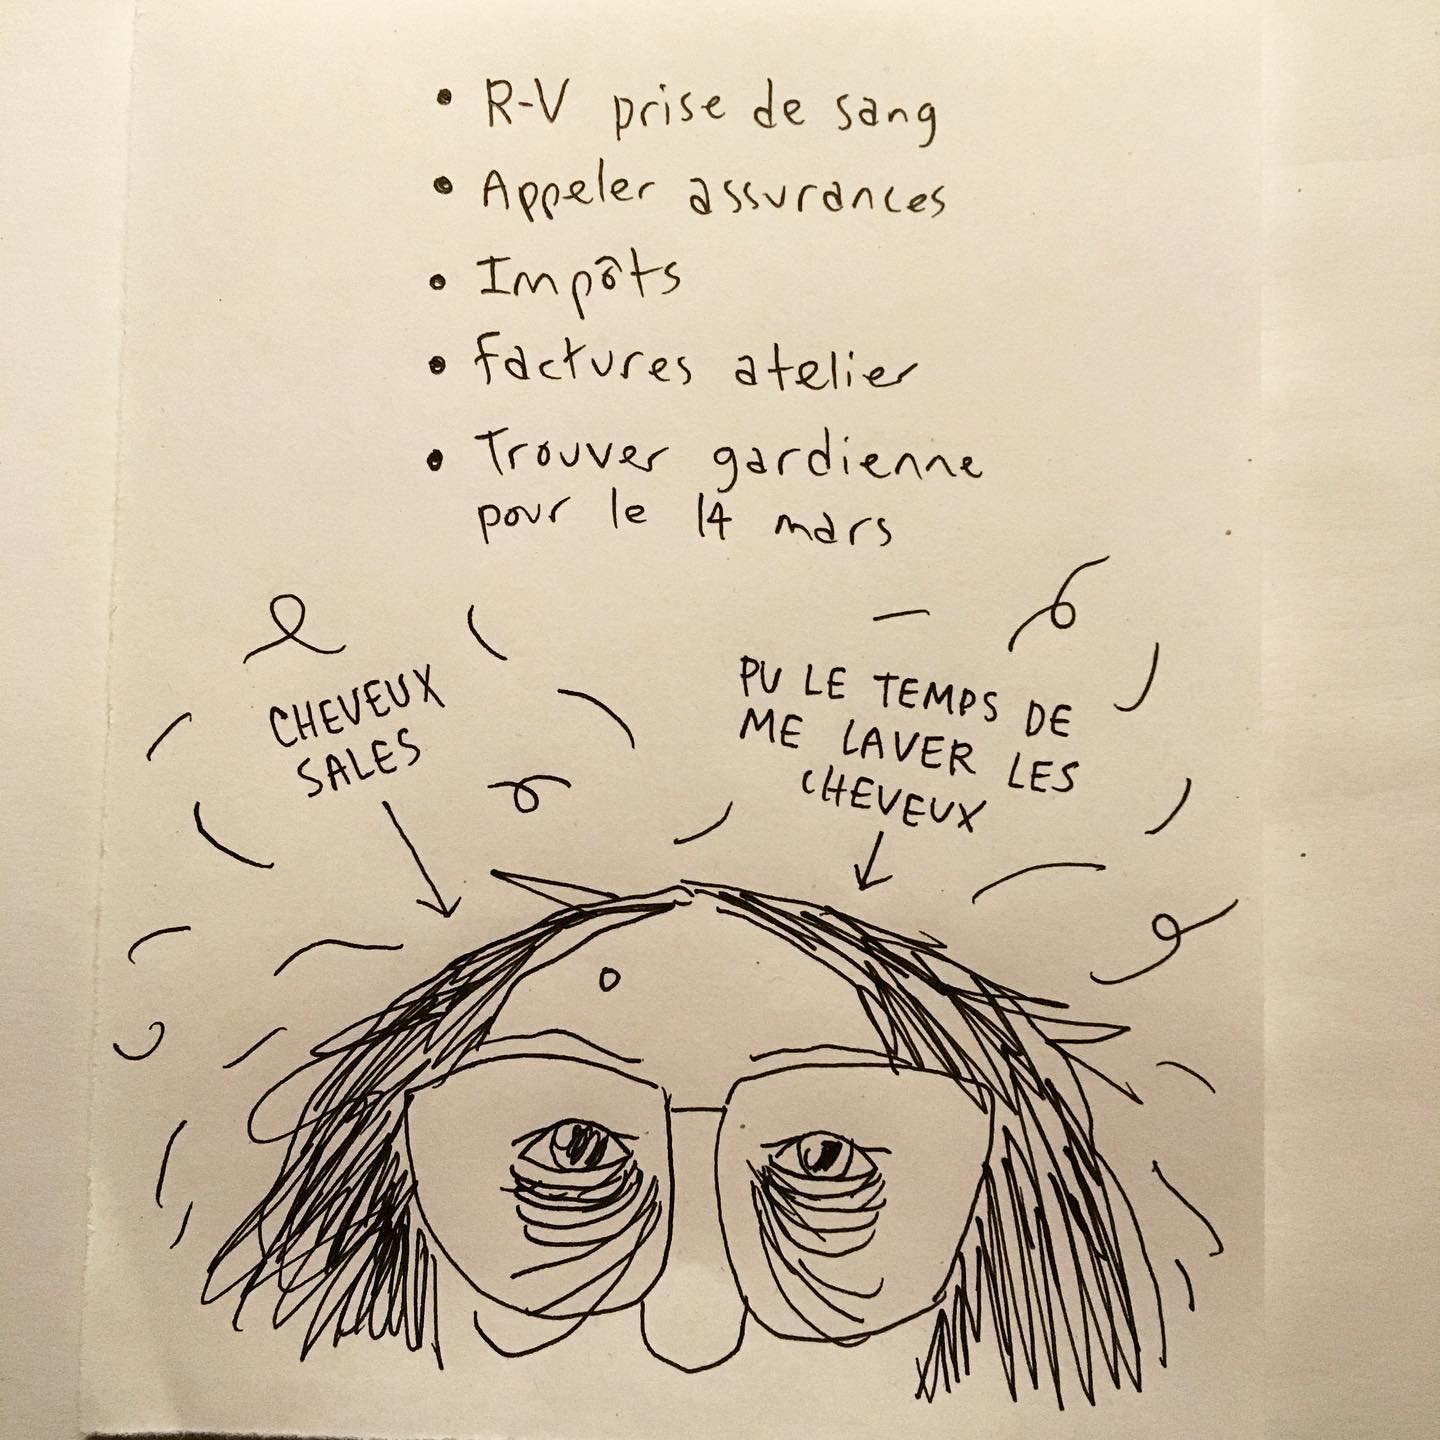 • R-V prise de sang
• Appeler assurances
• Impôts
• factures atelier
• Trouver gardienne
pour le 14 mars
CHEVEUX
SALES
PU LE TEMPS DE
ME LAVER LES
CHEVEUX